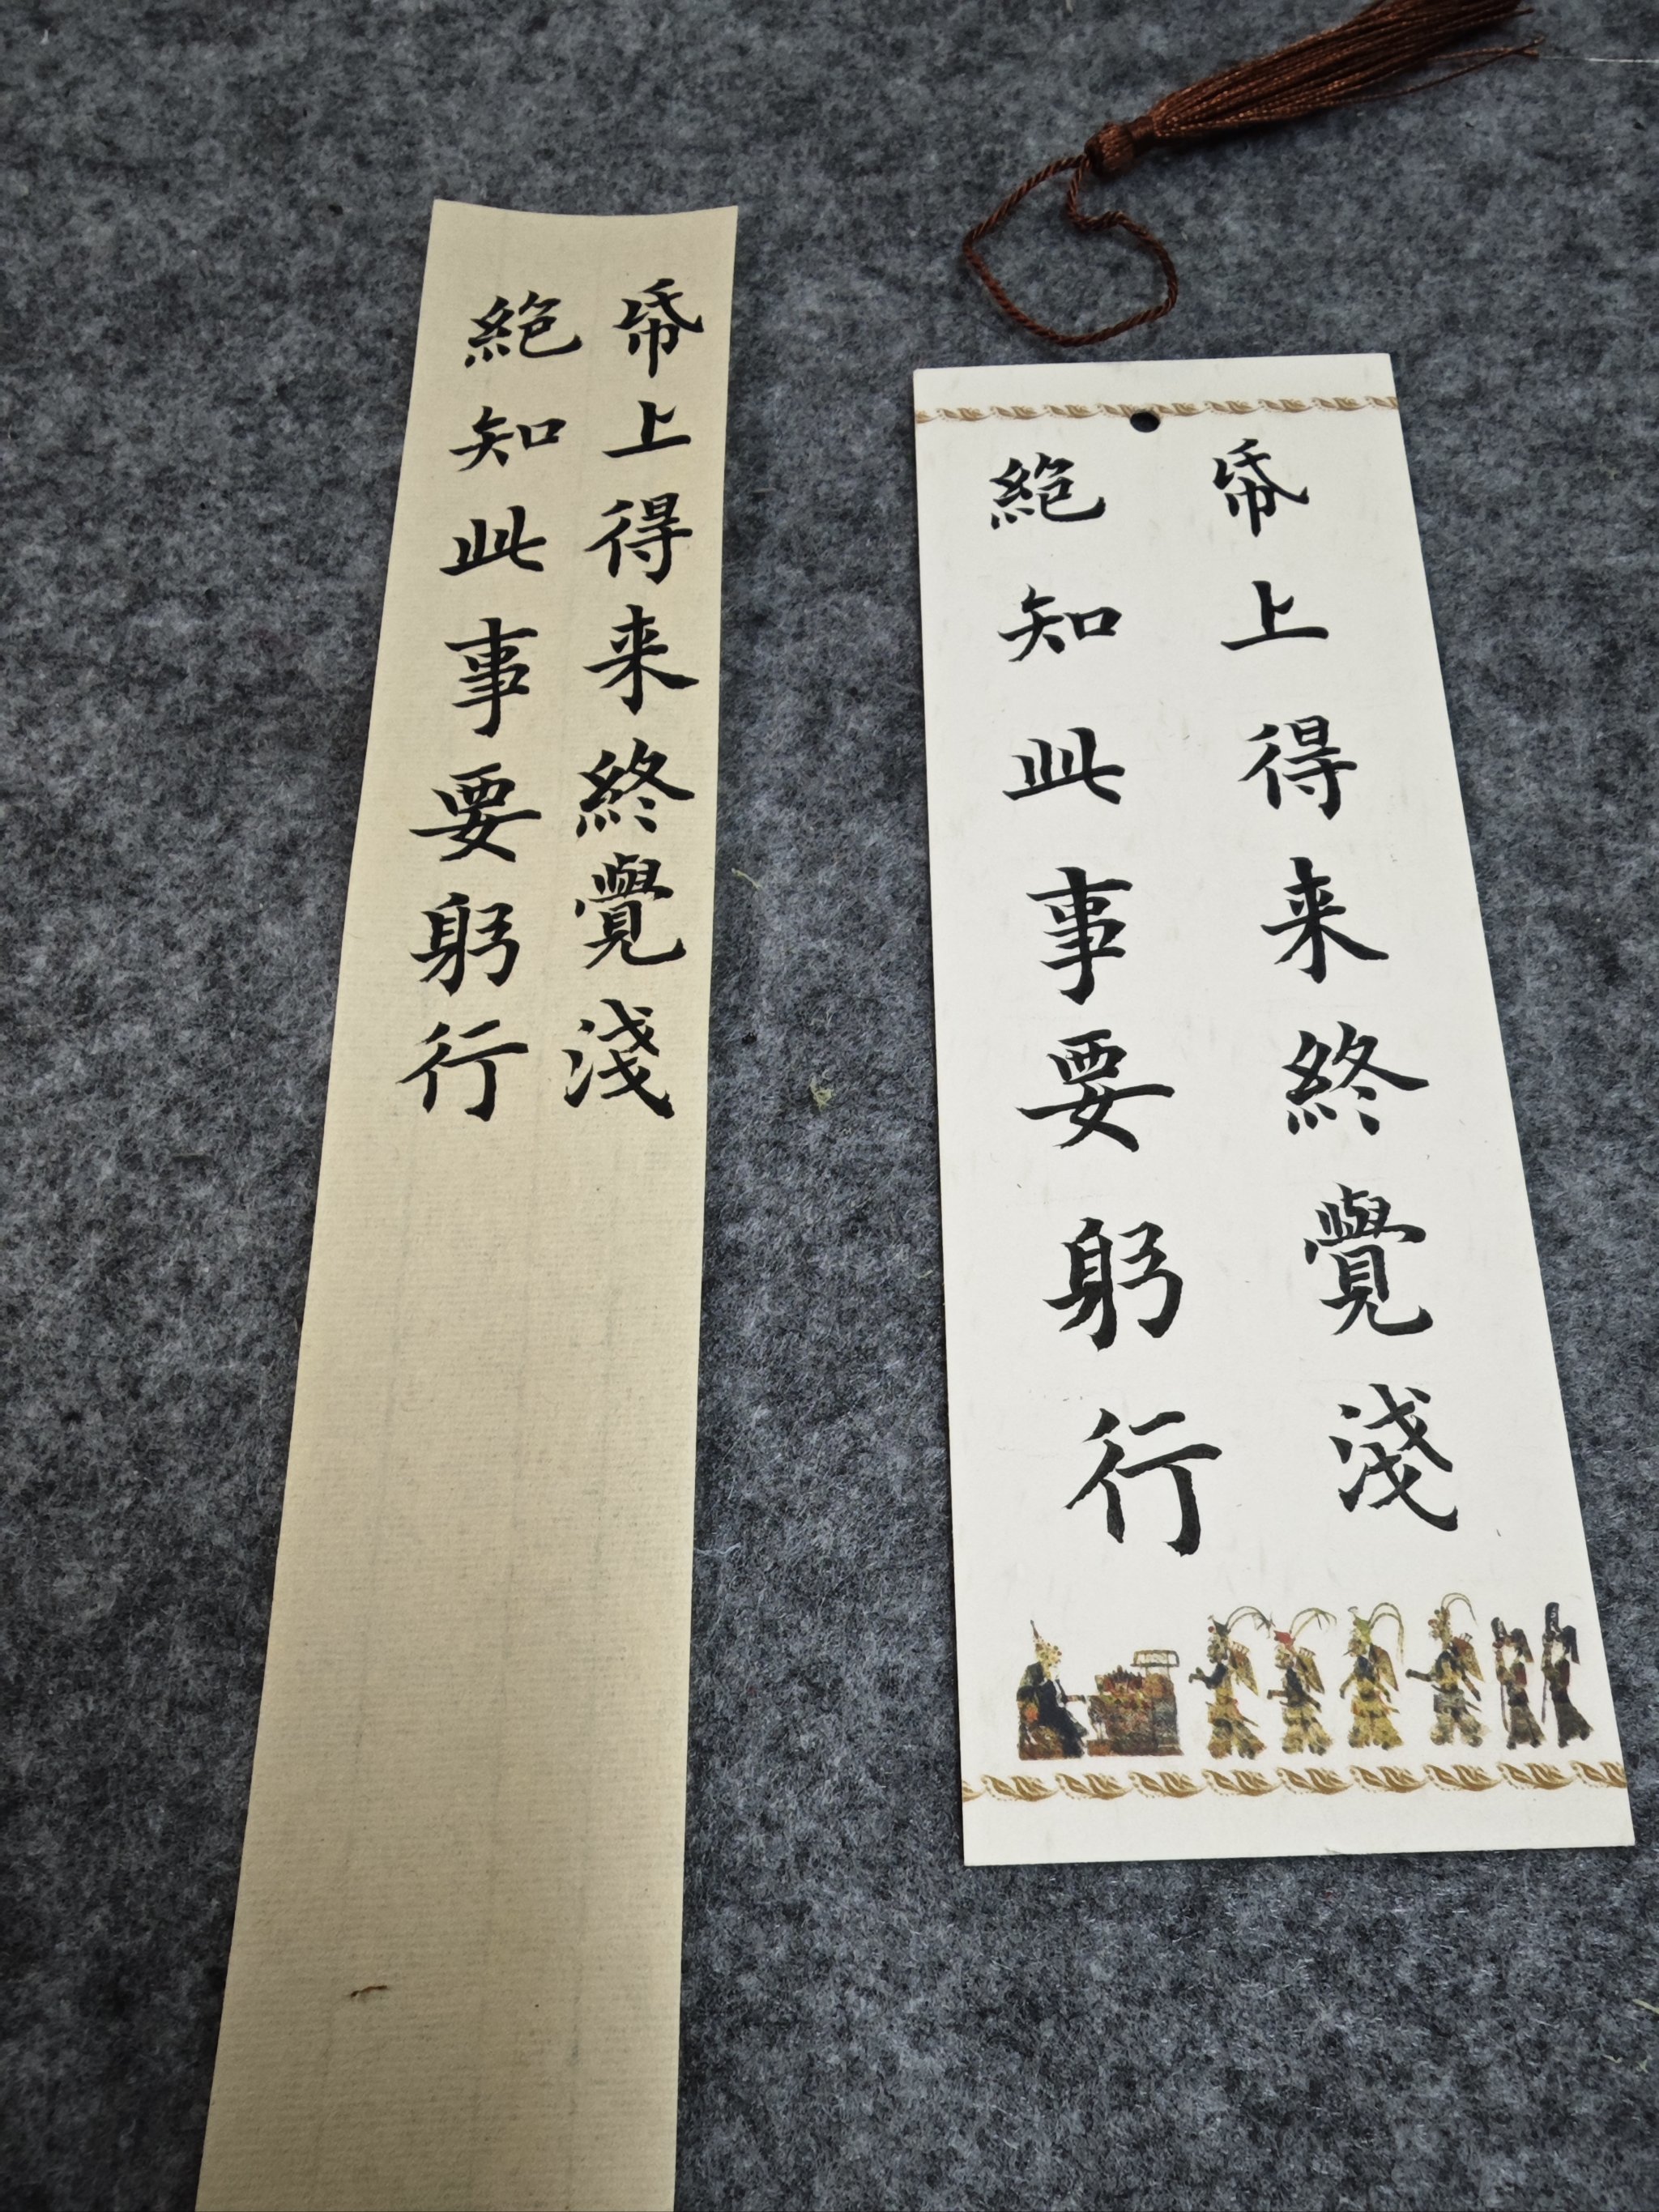 帋上得来終覺淺
絶知此事要躬行
帋上得来終覺淺
絶知此事要躬行